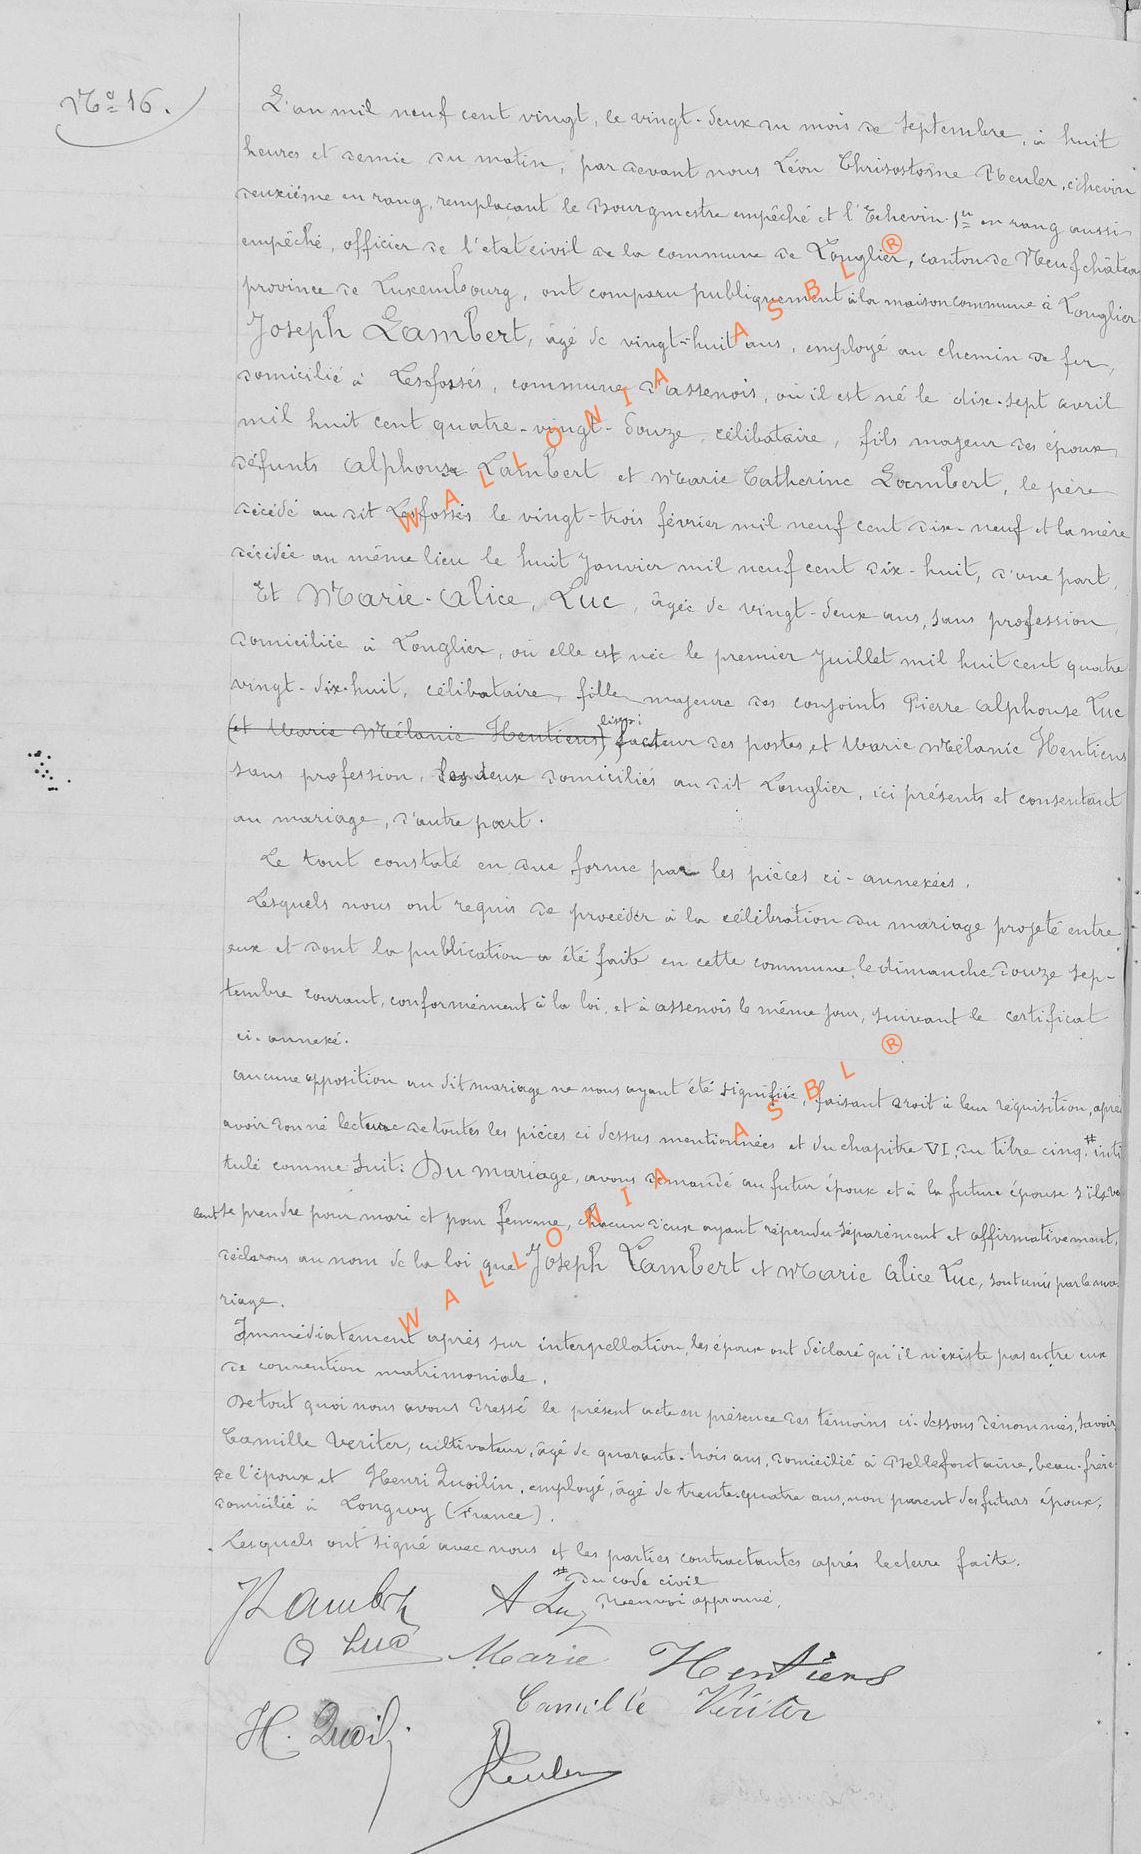 No 16.
L'an mil neuf cent vingt, le vingt-deux du mois de septembre, à huit
heures et demie du matin, par devant nous Léon Chrisostôme Reuler, échevin
deuxième en rang, remplaçant le Bourgmestre empêché et l'Echevin 1er en rang aussi
empêché, officier de l'état civil de la commune de Longlier, canton de Neufchâteau
province de Luxembourg, ont comparu publiquement à la maison commune à Longlier
Joseph Lambert, âgé de vingt-huit ans, employé au chemin de fer,
domicilié à Lesfossés, commune d'assenois, où il est né le dix-sept avril
mil huit cent quatre-vingt-douze, célibataire, fils majeur des époux
défunts Alphonse Lambert et Marie Catherine Lambert, le père
décédé au dit Lesfossés le vingt-trois février mil neuf cent dix-neuf et la mère
décédée au même lieu le huit Janvier mil neuf cent dix-huit, d'une part,
Et Marie-Alice, Luc, âgée de vingt-deux ans, sans profession,
domiciliée à Longlier, où elle est née le premier Juillet mil huit cent quatre
vingt-dix-huit, célibataire, fille majeure des conjoints Pierre Alphonse Luc
(et Marie Mélanie Hentiens) facteur des postes, et Marie Mélanie Hentiens
sans profession, les deux domiciliés au dit Longlier, ici présents et consentant
au mariage, d'autre part.
Le tout constaté en due forme par les pièces ci-annexées.
Lesquels nous ont requis de procéder à la célébration du mariage projeté entre
eux et dont la publication a été faite en cette commune, le dimanche douze sep-
tembre courant, conformément à la loi, et à assenois le même jour, suivant le certificat
ci-annexé.
aucune opposition au dit mariage ne nous ayant été signifiée, faisant droit à leur réquisition, après
avoir donné lecture de toutes les pièces ci dessus mentionnées et du chapitre VI, du titre cinq, # inti
tulé comme suit: Du mariage, avons demandé au futur époux et à la future épouse s'ils veu
lent se prendre pour mari et pour femme, chacun d'eux ayant répondu séparément et affirmativement,
déclarons au nom de la loi que Joseph Lambert et Marie Alice Luc, sont unis par le ma-
riage.
Immédiatement après sur interpellation, les époux ont déclaré qu'il n'existe pas entre eux
de convention matrimoniale.
De tout quoi nous avons dressé le présent acte en présence des témoins ci-dessous dénommés, savoir
Camille Veriter, cultivateur, âgé de quarante-trois ans, domicilié à Bellefontaine, beau-frère
de l'époux et Henri Quoilin, employé, âgé de trente-quatre ans, non parent des futurs époux,
domicilié à Longwy (France).
Lesquels ont signé avec nous et les parties contractantes après lecture faite.
# du code civil
Renvoi approuvé.
JLambert A Luc
A Luc Marie Hentiens
Camille Vériter
H. Quoilin
Reuler
WALLONIA ASBL ®
WALLONIA ASBL ®